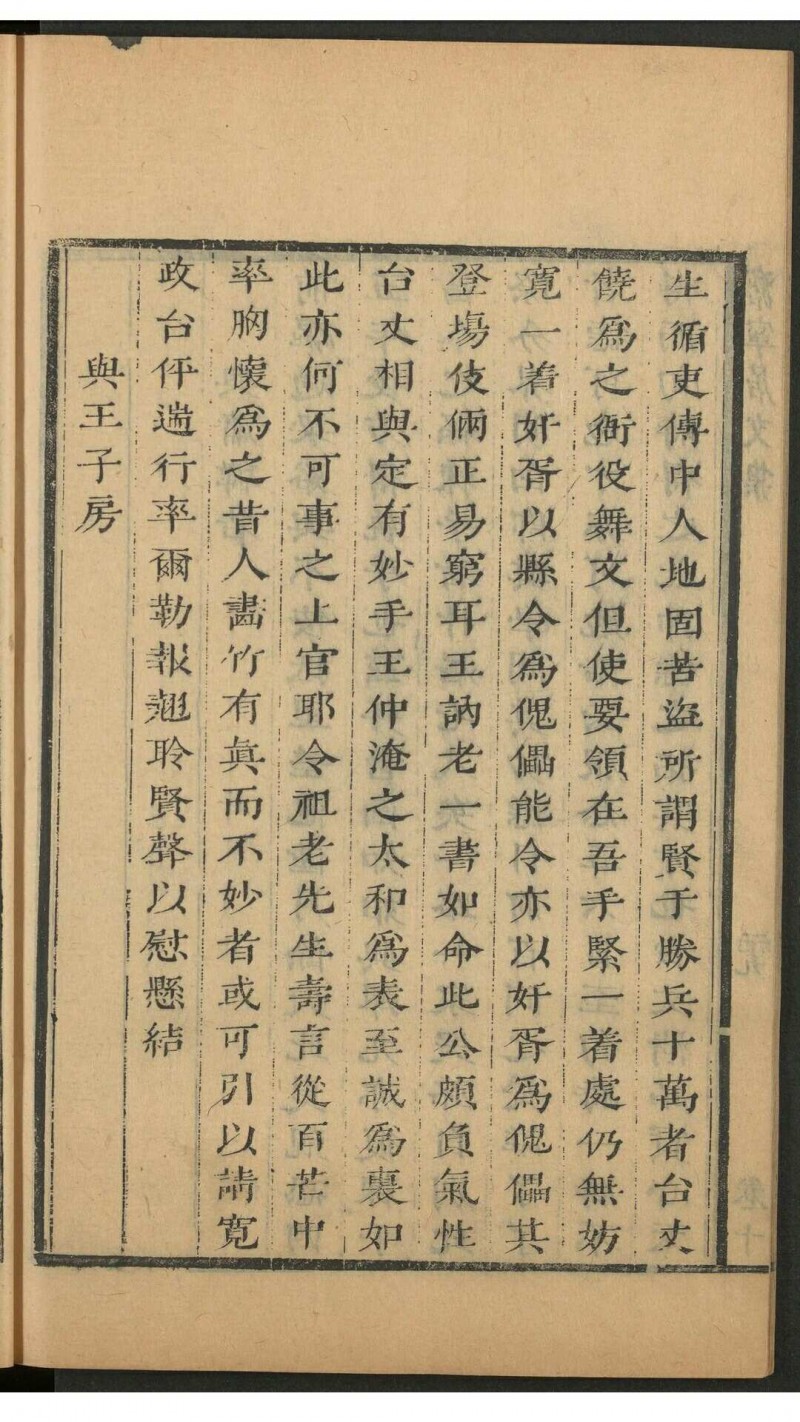 生循吏傳中人地固苦盜所謂賢于勝兵十萬者台丈
饒爲之衙役舞文但使要領在吾手緊一着處仍無妨
寬一着奸胥以縣令爲傀儡能令亦以奸胥爲傀儡其
登塲伎倆正易窮耳王訥老一書如命此公頗負氣性
台丈相與定有妙手王仲淹之太和爲表至誠爲裏如
此亦何不可事之上官耶令祖老先生壽言從百芒中
率胸懷爲之昔人畵竹有眞而不妙者或可引以請寬
政台伻遄行率爾勒報翹聆賢聲以慰懸結
與王子房